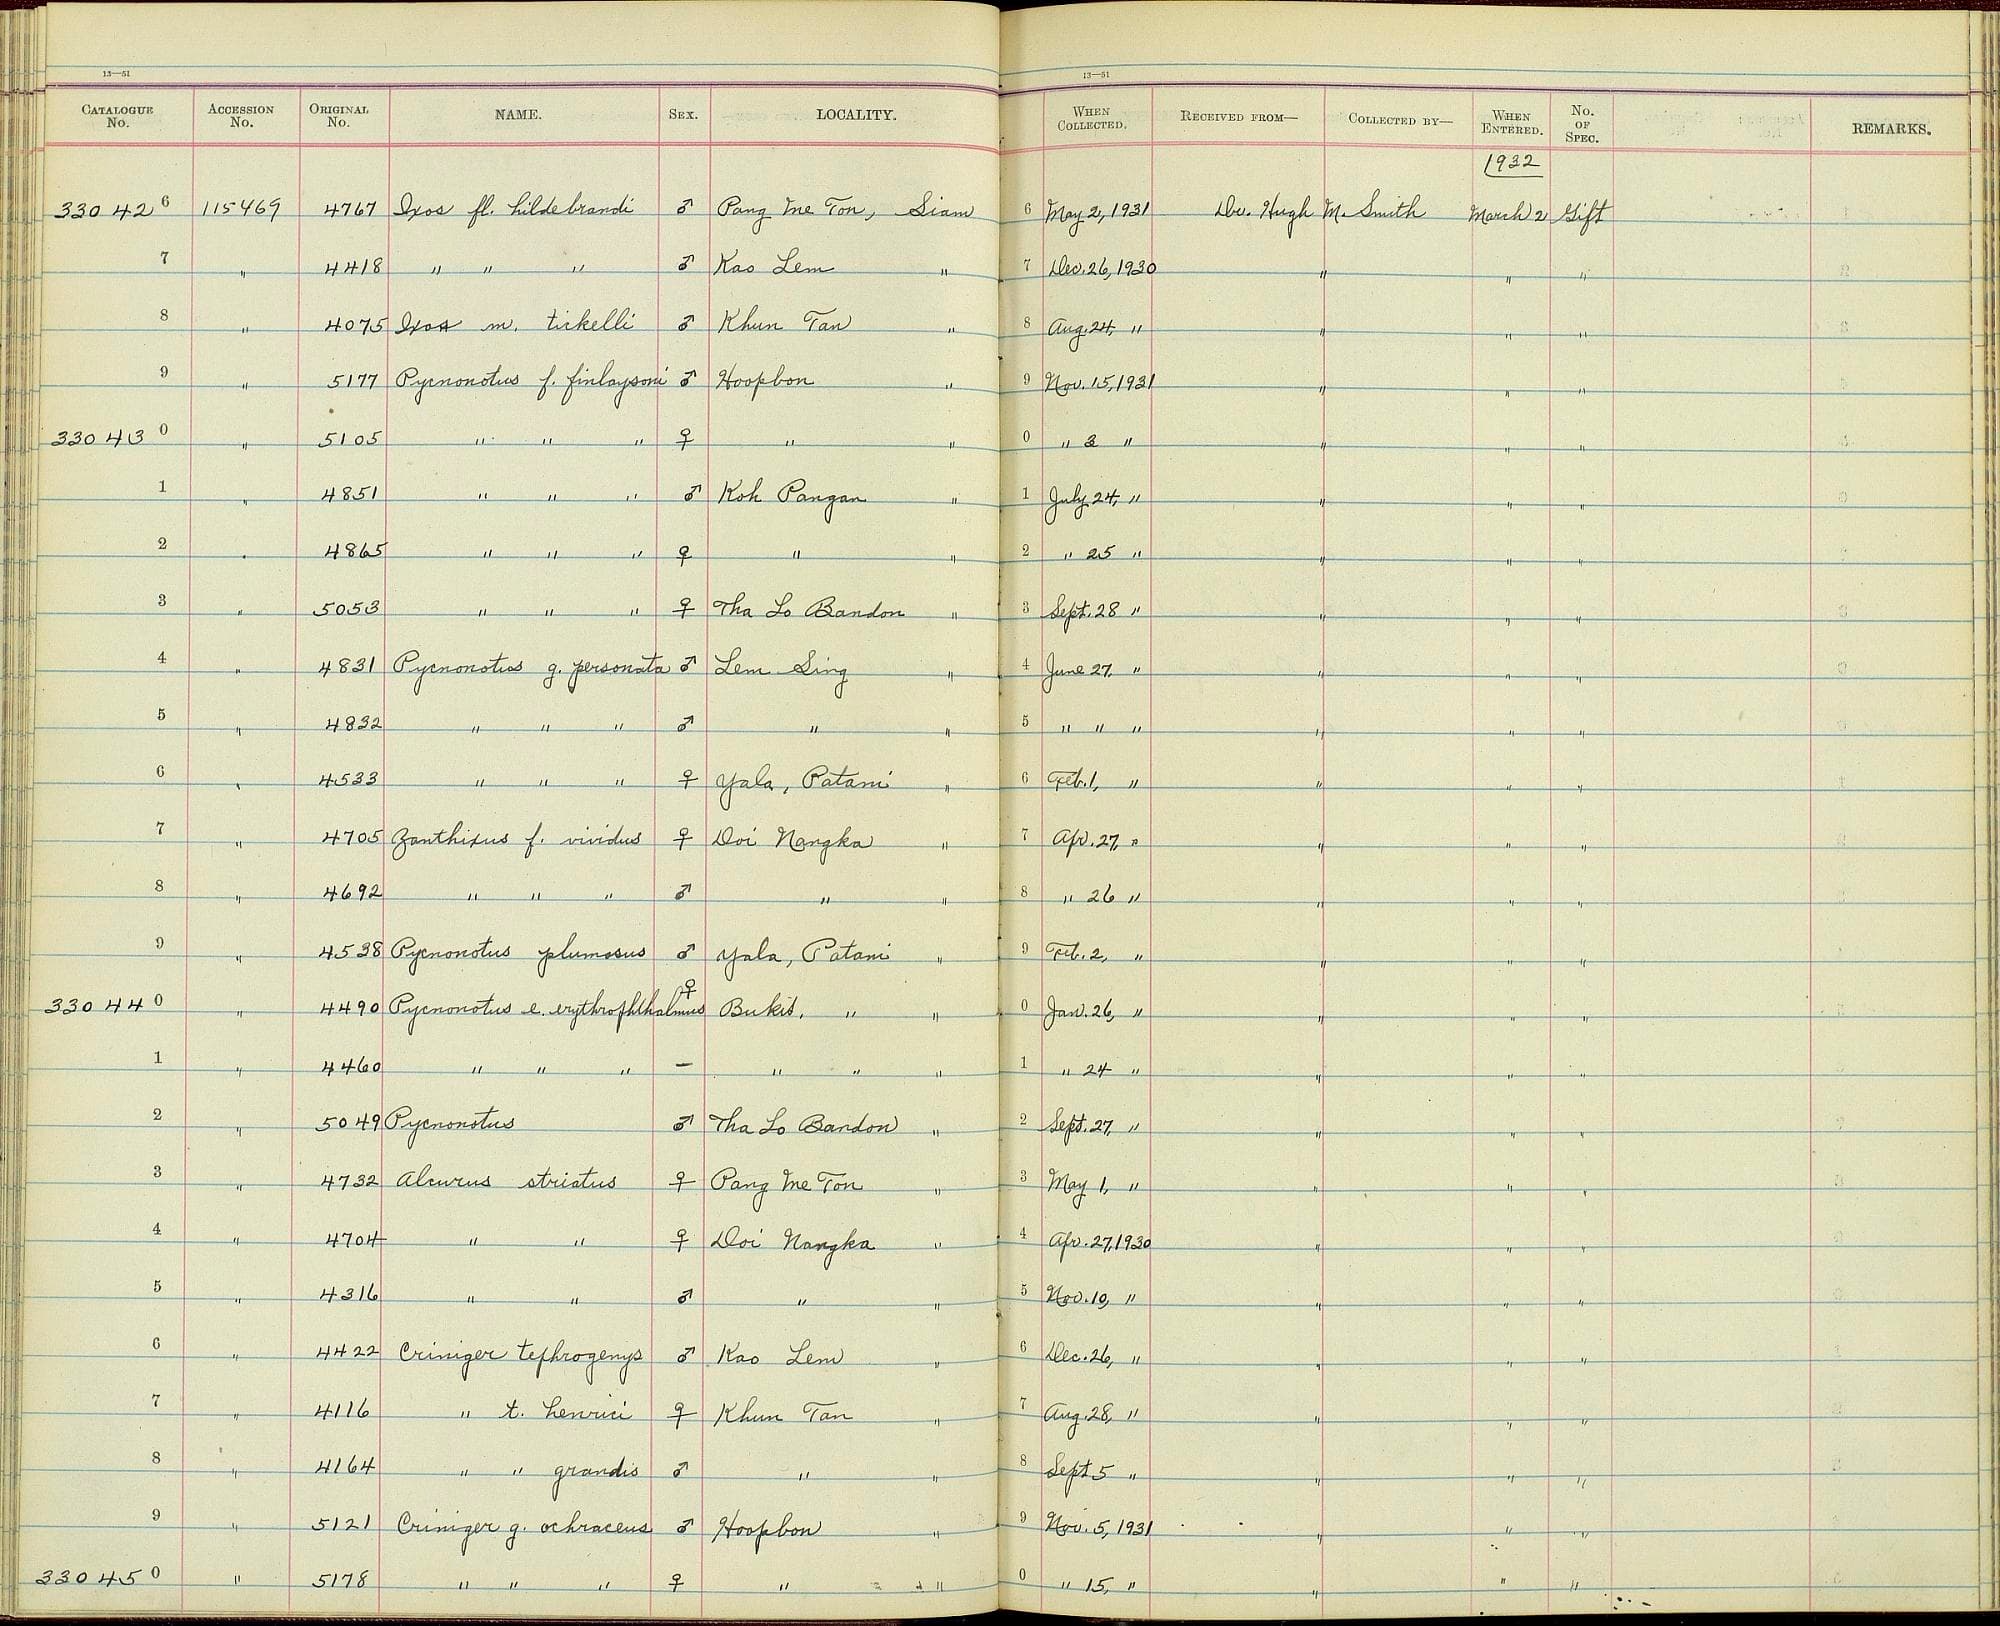 13—51 13—51
CATALOGUE No. ACCESSION No. ORIGINAL No. NAME. SEX. LOCALITY. WHEN COLLECTED. RECEIVED FROM— COLLECTED BY— WHEN ENTERED. No. OF SPEC. REMARKS.
1932
330426 115469 4767 Ixos fl. hildebrandi ♂ Pang Me Ton, Siam 6 May 2, 1931 Dr. Hugh M. Smith March 2 Gift
7 " 4418 " " " ♂ Kao Lem " 7 Dec. 26, 1930 " " "
8 " 4075 Ixos m. tickelli ♂ Khun Tan " 8 Aug. 24, " " " "
9 " 5177 Pycnonotus f. finlaysoni ♂ Hoopbon " 9 Nov. 15, 1931 " " "
330430 " 5105 " " " ♀ " " 0 " 3 " " " "
1 " 4851 " " " ♂ Koh Pangan " 1 July 24, " " " "
2 " 4865 " " " ♀ " " 2 " 25 " " " "
3 " 5053 " " " ♀ Tha Lo Bandon " 3 Sept. 28 " " " "
4 " 4831 Pycnonotus g. personata ♂ Lem Sing " 4 June 27, " " " "
5 " 4832 " " " ♂ " " 5 " " " " " "
6 " 4533 " " " ♀ Yala, Patani " 6 Feb. 1, " " " "
7 " 4705 Zanthixus f. vividus ♀ Doi Nangka " 7 Apr. 27, " " " "
8 " 4692 " " " ♂ " " 8 " 26 " " " "
9 " 4538 Pycnonotus plumosus ♂ Yala, Patani " 9 Feb. 2, " " " "
330440 " 4490 Pycnonotus e. erythrophthalmus ♀ Bukit, " " 0 Jan. 26, " " " "
1 " 4460 " " " — " " " 1 " 24 " " " "
2 " 5049 Pycnonotus ♂ Tha Lo Bandon " 2 Sept. 27, " " " "
3 " 4732 Alcurus striatus ♀ Pang Me Ton " 3 May 1, " " " "
4 " 4704 " " ♀ Doi Nangka " 4 Apr. 27, 1930 " " "
5 " 4316 " " ♂ " " 5 Nov. 10, " " " "
6 " 4422 Criniger tephrogenys ♂ Kao Lem " 6 Dec. 26, " " " "
7 " 4116 " t. henrici ♀ Khun Tan " 7 Aug. 28, " " " "
8 " 4164 " " grandis ♂ " " 8 Sept 5 " " " "
9 " 5121 Criniger g. ochraceus ♂ Hoopbon " 9 Nov. 5, 1931 " " "
330450 " 5178 " " " ♀ " " 0 " 15, " " " "